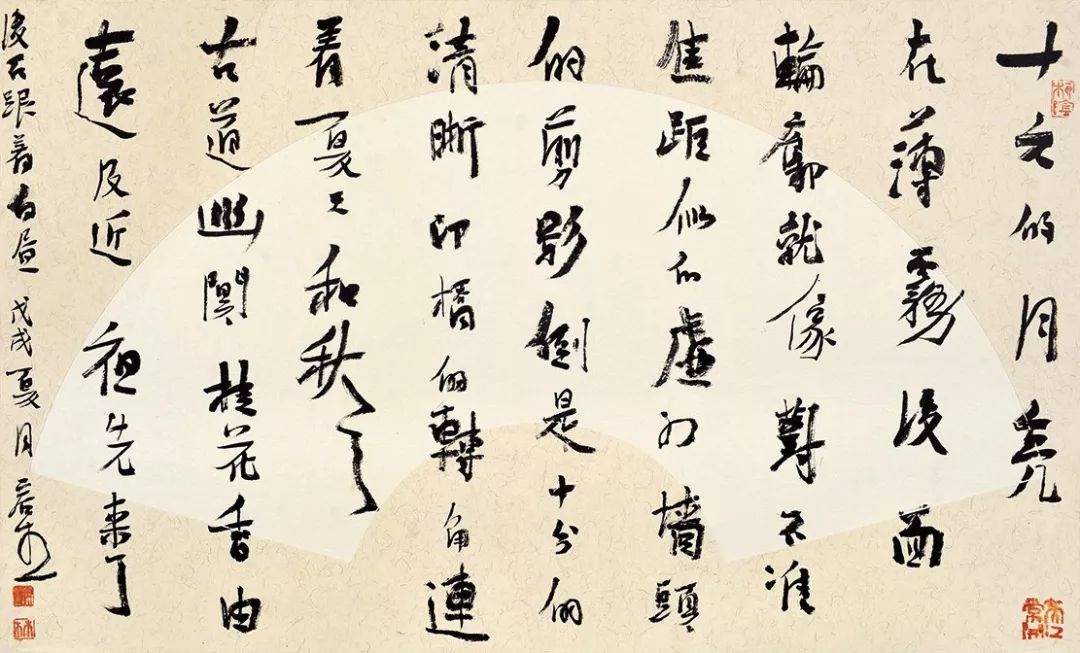 十的月亮
在薄霧後面
輪廓就像對不准
焦距似的虛幻墻頭
的剪影倒是十分的
清晰印橋的轉角連
着夏天和秋天
古道幽闃桂花香由
遠及近 夜先來了
後面跟着白昼 戊戌夏月